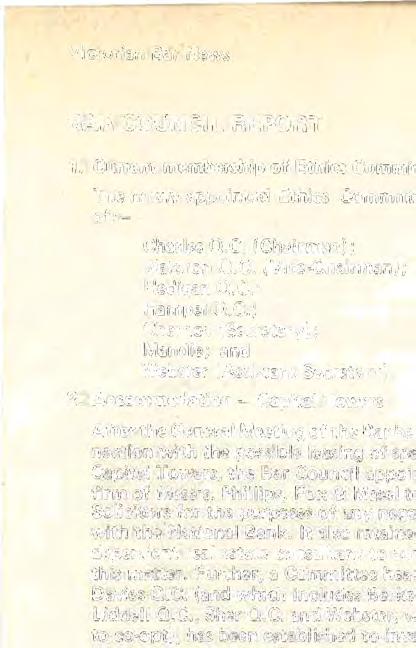 Victorian Bar News
BAR COUNCIL REPORT
1. Current membership of Ethics Commit
The newly appointed Ethics Commit
of:—
Charles Q.C. (Chairman);
(Vice-Chairman);
Hedigan Q.C.;
Hampel Q.C.;
Chernov (Secretary);
Mandie; and
Webster (Assistant Secretary).
2. Accommodation — Capital Towers
After the General Meeting of the Bar he
nection with the possible leasing of spa
Capital Towers, the Bar Council appoi
firm of Messrs. Phillips, Fox & Masel
Solicitors for the purposes of any nego
with the National Bank. It also retaine
dependent real estate consultant to
this matter. Further, a Committee hea
Davies Q.C. (and which includes
Liddell Q.C., Sher Q.C. and Webster, w
to co-opt) has been established to inve